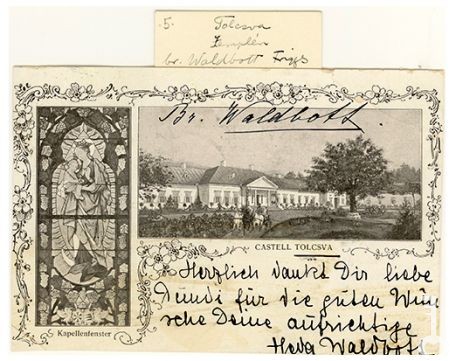 5. Tolcsva
Zemplén
br. Waldbott Frigyes
Br. Waldbott.
CASTELL TOLCSVA
Kapellenfenster
Herzlich dankt Dir liebe
Dundi für die guten Wün
sche Deine aufrichtige
Heda Waldbott